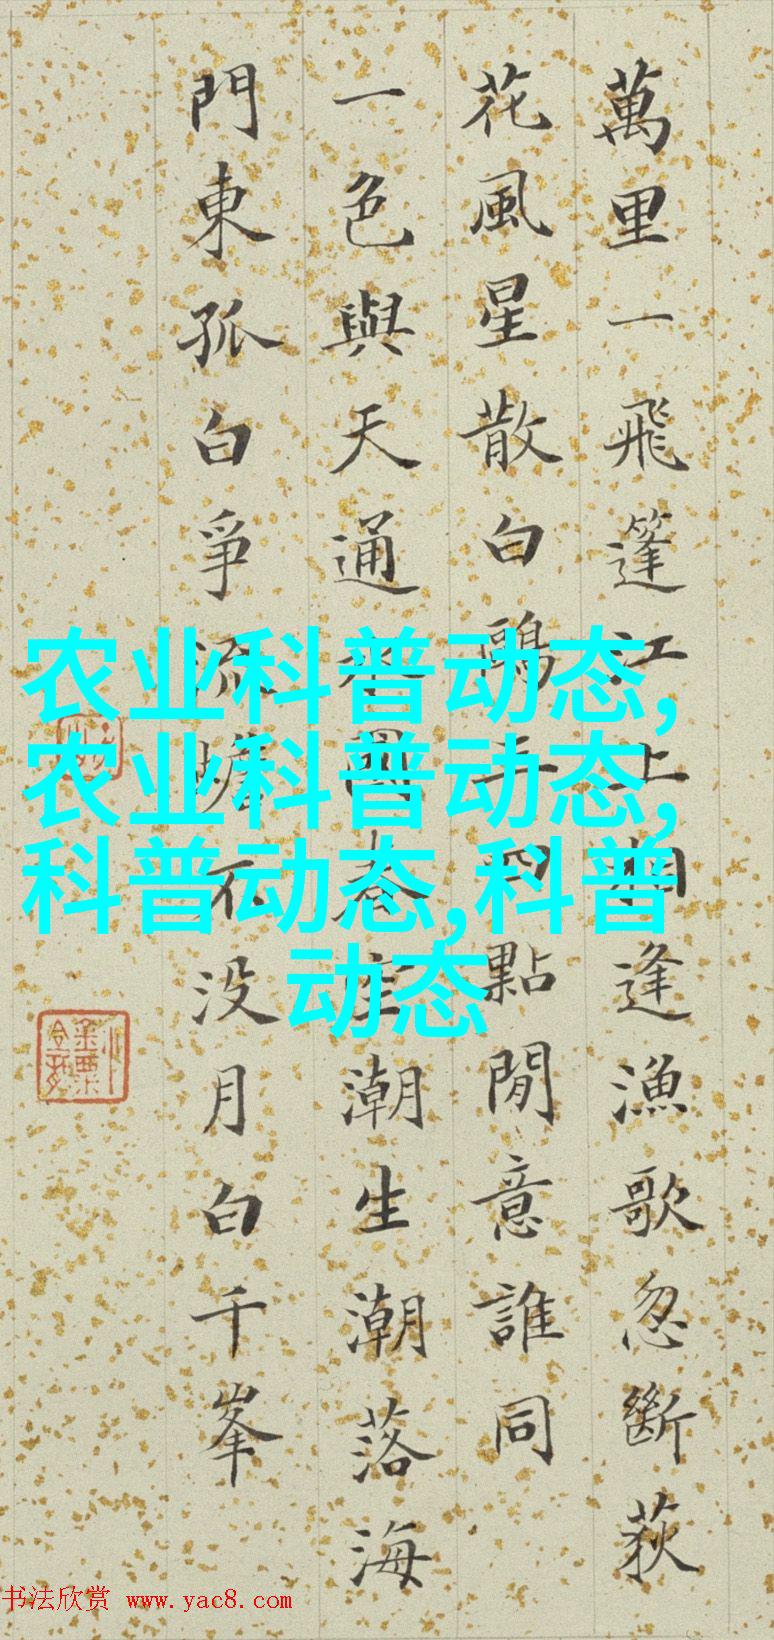 萬里一飛篷江上相逢漁歌忽斷荻
花風星散白鷗三四點閒意誰同
一色與天通水國春空潮生潮落海
門東孤白爭流蟾不沒月白千峯
农业科普动态,
农业科普动态,
科普动态,科普
动态
书法欣赏 www.yac8.com